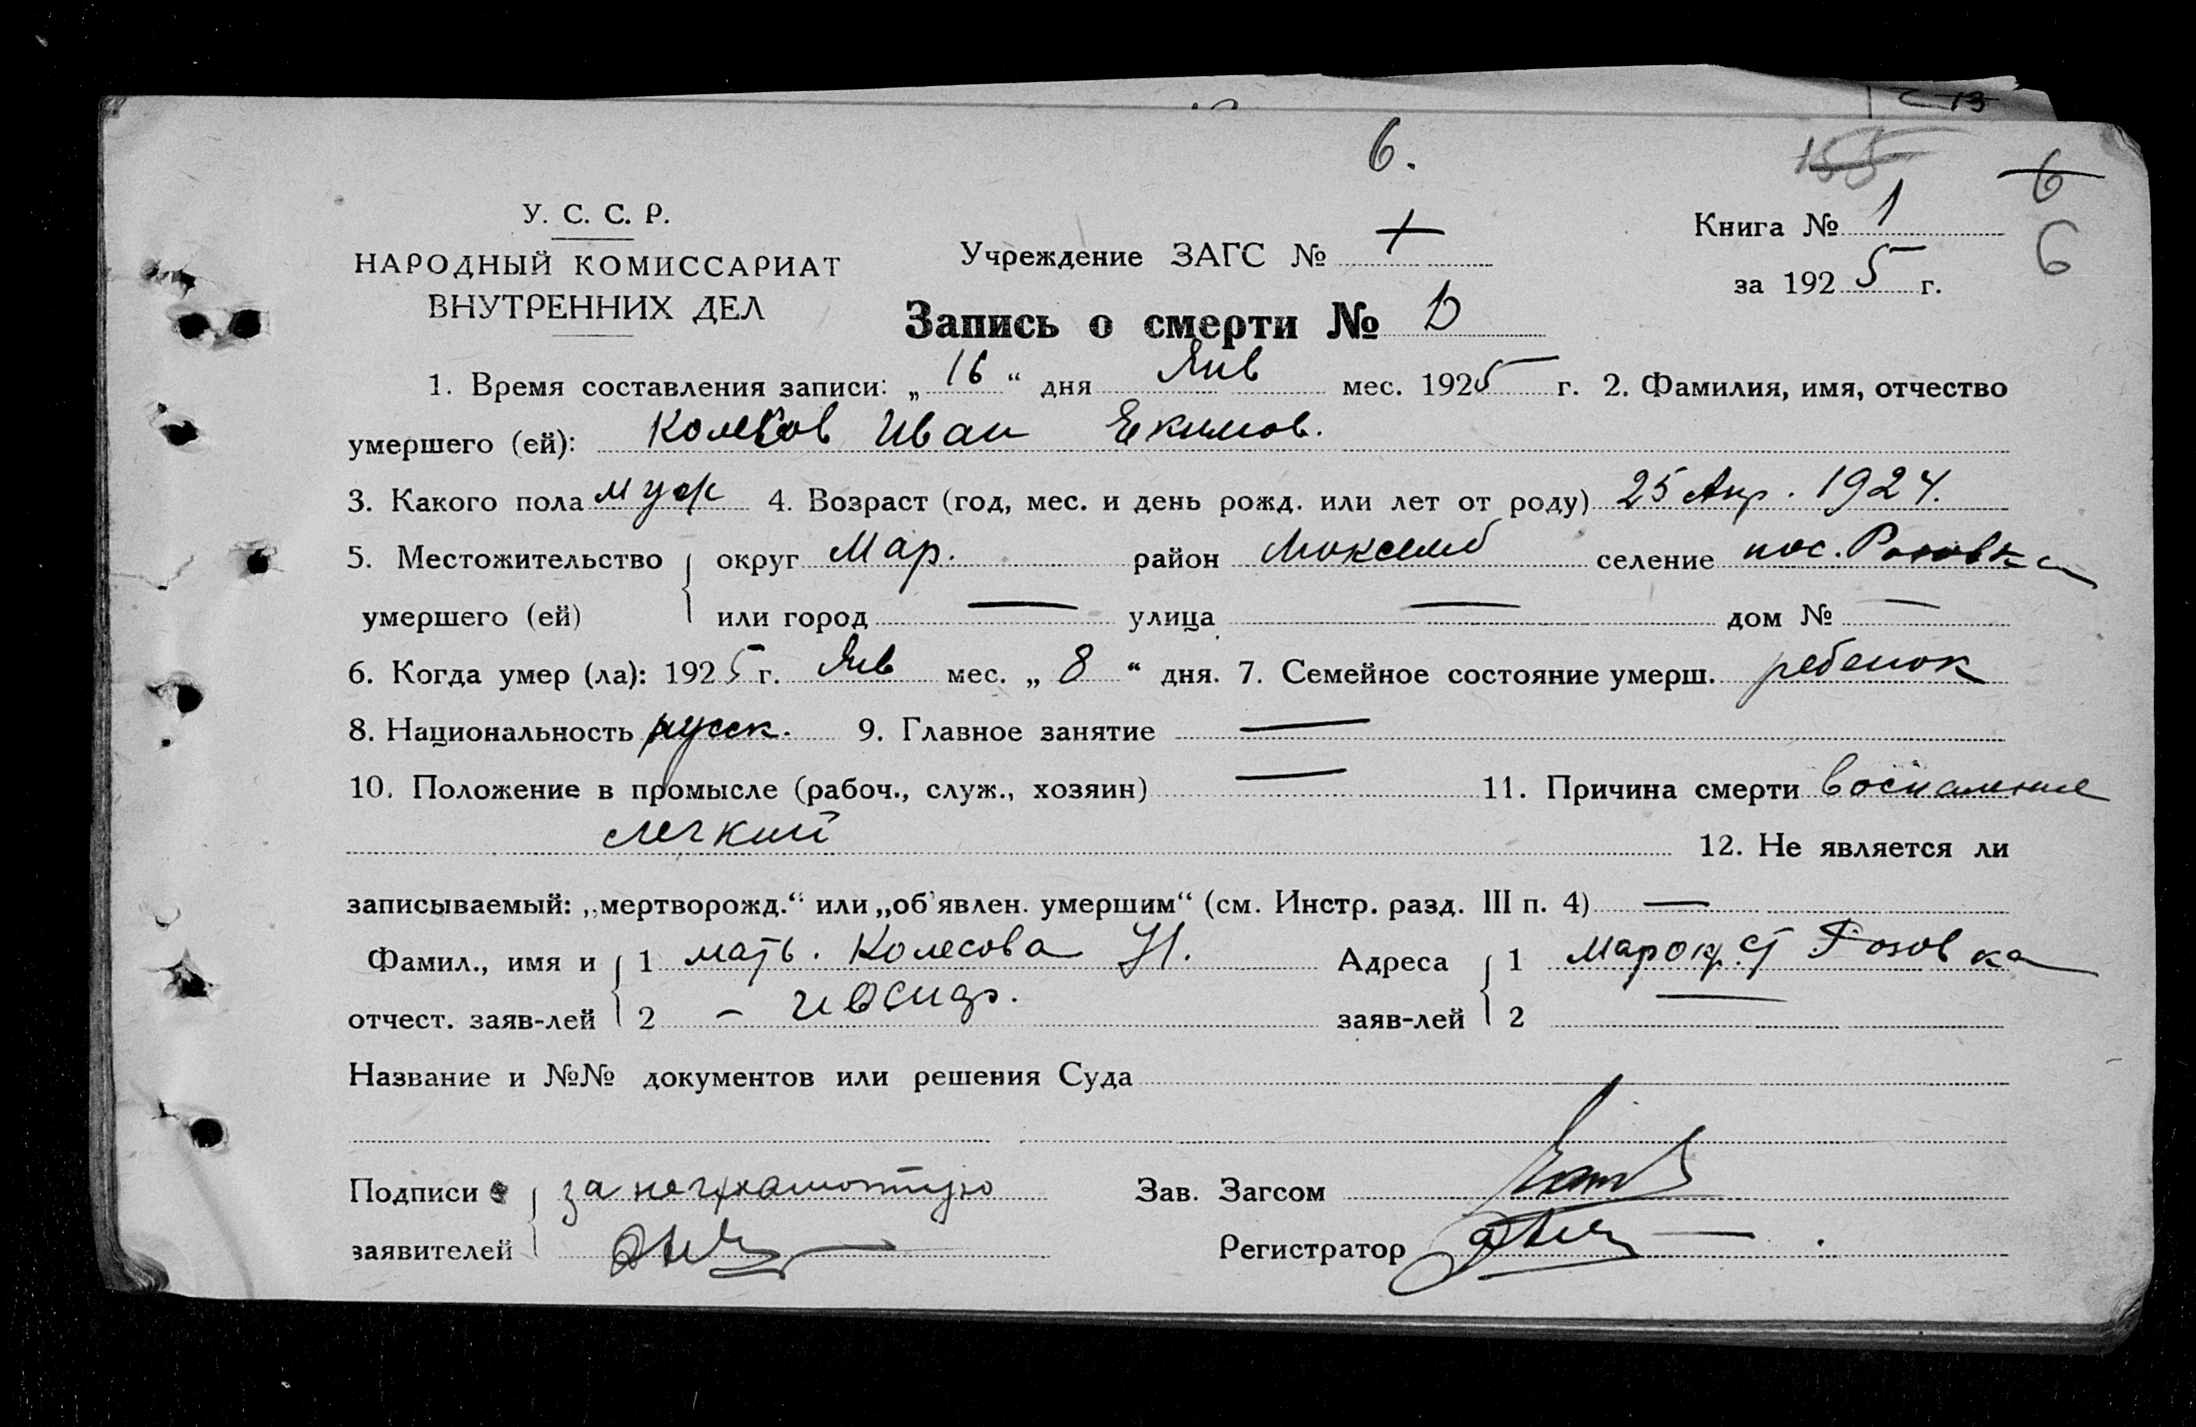 13
6.
155
6
У. С. С. Р.
Книга № 1
6
НАРОДНЫЙ КОМИССАРИАТ
Учреждение ЗАГС №
за 1925 г.
ВНУТРЕННИХ ДЕЛ
Запись о смерти №
1. Время составления записи: „ 16 “ дня Янв мес. 1925 г. 2. Фамилия, имя, отчество
умершего (ей): Колесов Иван Екимов.
3. Какого пола муж 4. Возраст (год, мес. и день рожд. или лет от роду) 25 Апр. 1924.
5. Местожительство округ Мар. район селение пос. Розовка
умершего (ей) или город — улица — дом № —
6. Когда умер (ла): 1925 г. Янв мес. „ 8 “ дня. 7. Семейное состояние умерш. ребенок
8. Национальность русск. 9. Главное занятие —
10. Положение в промысле (рабоч., служ., хозяин) — 11. Причина смерти воспаление
легкий 12. Не является ли
записываемый: „мертворожд.“ или „об'явлен. умершим“ (см. Инстр. разд. III п. 4) —
Фамил., имя и 1 мать. Колесова Адреса 1 Мар окр. ст Розовка
отчест. заяв-лей 2 – заяв-лей 2 —
Название и №№ документов или решения Суда
Подписи за неграмотную Зав. Загсом
заявителей Регистратор